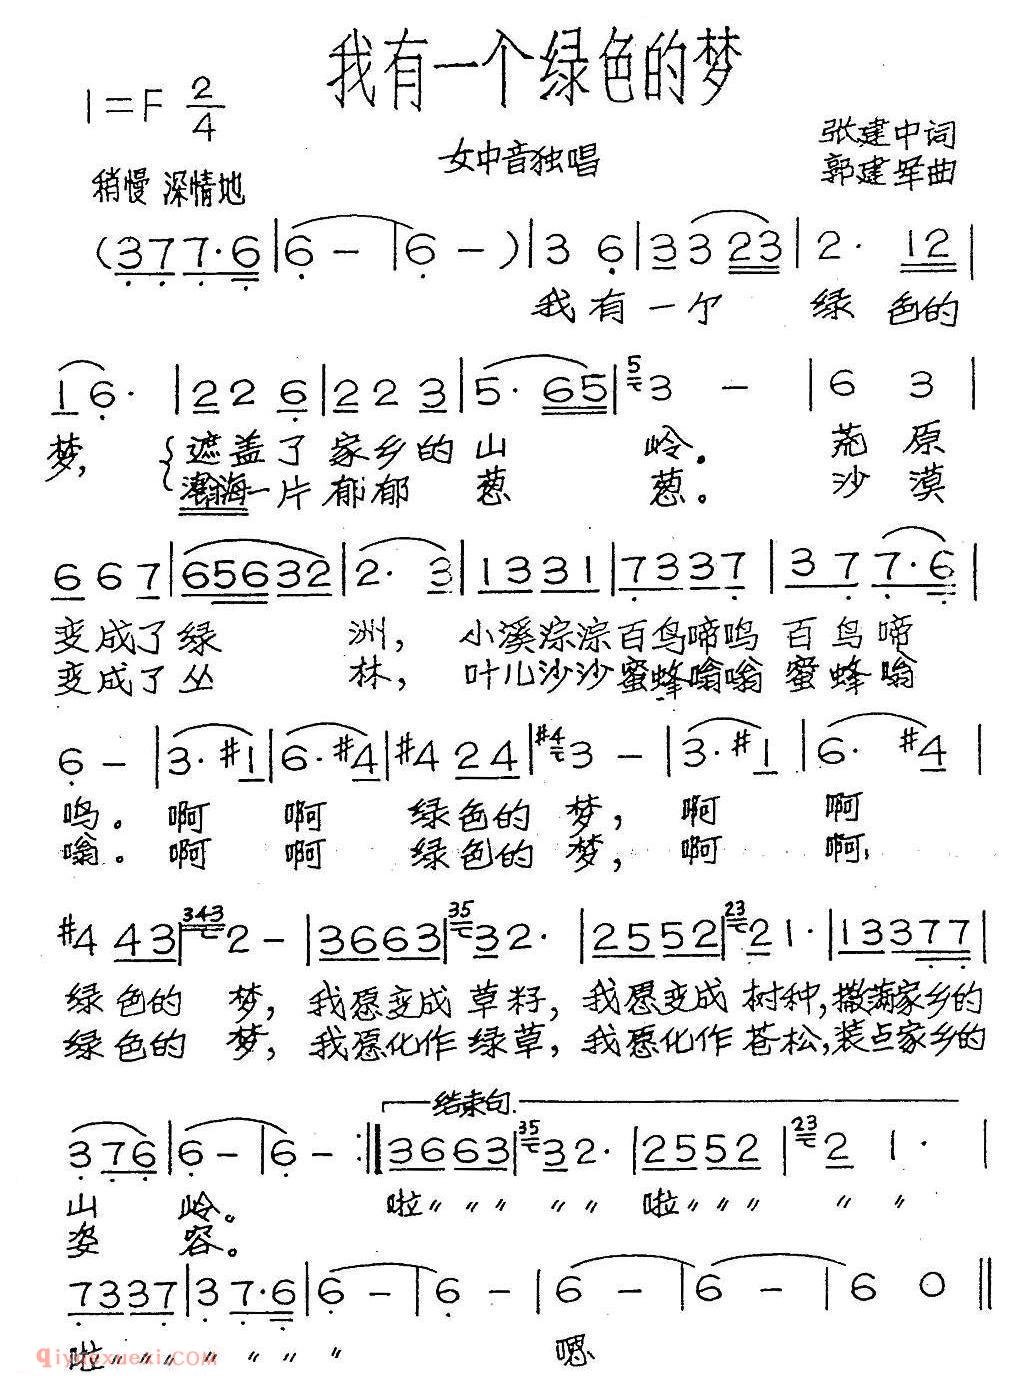 我有一个绿色的梦
1=F 2/4
女中音独唱
张建中词
稍慢 深情地
郭建军曲
(3 7 7·6 | 6 - | 6 - ) | 3 6 | 3 3 2 3 | 2· 1 2 |
我有一个 绿色的
1 6· | 2 2 6 | 2 2 3 | 5· 6 5 | 5 3 - | 6 3 |
梦, 遮盖了家乡的山 岭。 荒原
瀚海一片郁郁 葱 葱。 沙漠
6 6 7 | 6 5 6 3 2 | 2· 3 | 1 3 3 1 | 7 3 3 7 | 3 7 7·6 |
变成了绿 洲, 小溪淙淙百鸟啼鸣 百鸟啼
变成了丛 林, 叶儿沙沙蜜蜂嗡嗡 蜜蜂嗡
6 - | 3· #1 | 6· #4 | #4 2 4 | #4 3 - | 3· #1 | 6· #4 |
鸣。啊 啊 绿色的 梦, 啊 啊
嗡。啊 啊 绿色的 梦, 啊 啊,
#4 4 3 | 343 2 - | 3 6 6 3 | 35 3 2· | 2 5 5 2 | 23 2 1· | 1 3 3 7 7 |
绿色的 梦, 我愿变成 草籽, 我愿变成 树种, 撒满家乡的
绿色的 梦, 我愿化作 绿草, 我愿化作 苍松, 装点家乡的
结束句.
3 7 6 | 6 - | 6 - :‖ 3 6 6 3 | 35 3 2· | 2 5 5 2 | 23 2 1· |
山 岭。 啦〃〃〃 〃〃 啦〃〃〃 〃 〃
姿 容。
7 3 3 7 | 3 7·6 | 6 - | 6 - | 6 - | 6 - | 6 0 ‖
啦〃〃〃 〃〃〃 〃 嗯
qiyuexuexi.COM